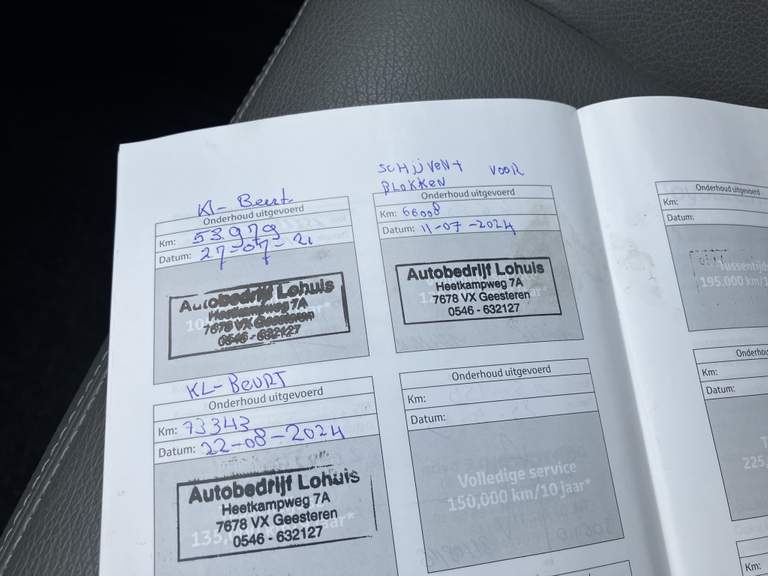 Kl- Beurt
Onderhoud uitgevoerd
Km: 53979
Datum: 27-07-21
Autobedrijf Lohuis
Heetkampweg 7A
7678 VX Geesteren
0546 - 632127
SCHIJVEN+ VOOR
BLOKKEN
Onderhoud uitgevoerd
Km: 66008
Datum: 11-07-2024
Autobedrijf Lohuis
Heetkampweg 7A
7678 VX Geesteren
0546 - 632127
KL-BEURT
Onderhoud uitgevoerd
Km: 73343
Datum: 22-08-2024
Autobedrijf Lohuis
Heetkampweg 7A
7678 VX Geesteren
0546 - 632127
Onderhoud uitgevoerd
Km:
Datum:
Volledige service
150,000 km/10 jaar*
Onderhoud uitgevoerd
Km:
Datum:
195.000 km/1
Km:
Datum:
225,